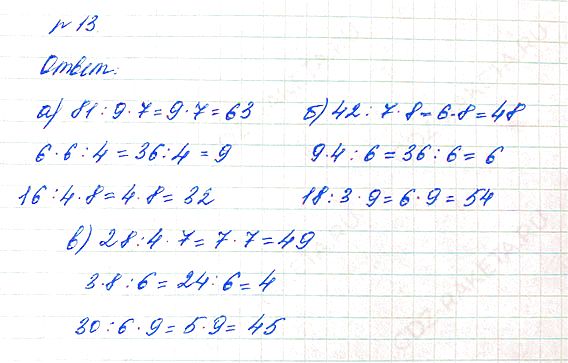 № 13.
Ответ:
а) 81 : 9 · 7 = 9 · 7 = 63
6 · 6 : 4 = 36 : 4 = 9
16 : 4 · 8 = 4 · 8 = 32
б) 42 : 7 · 8 = 6 · 8 = 48
9 · 4 : 6 = 36 : 6 = 6
18 : 3 · 9 = 6 · 9 = 54
в) 28 : 4 · 7 = 7 · 7 = 49
3 · 8 : 6 = 24 : 6 = 4
30 : 6 · 9 = 5 · 9 = 45